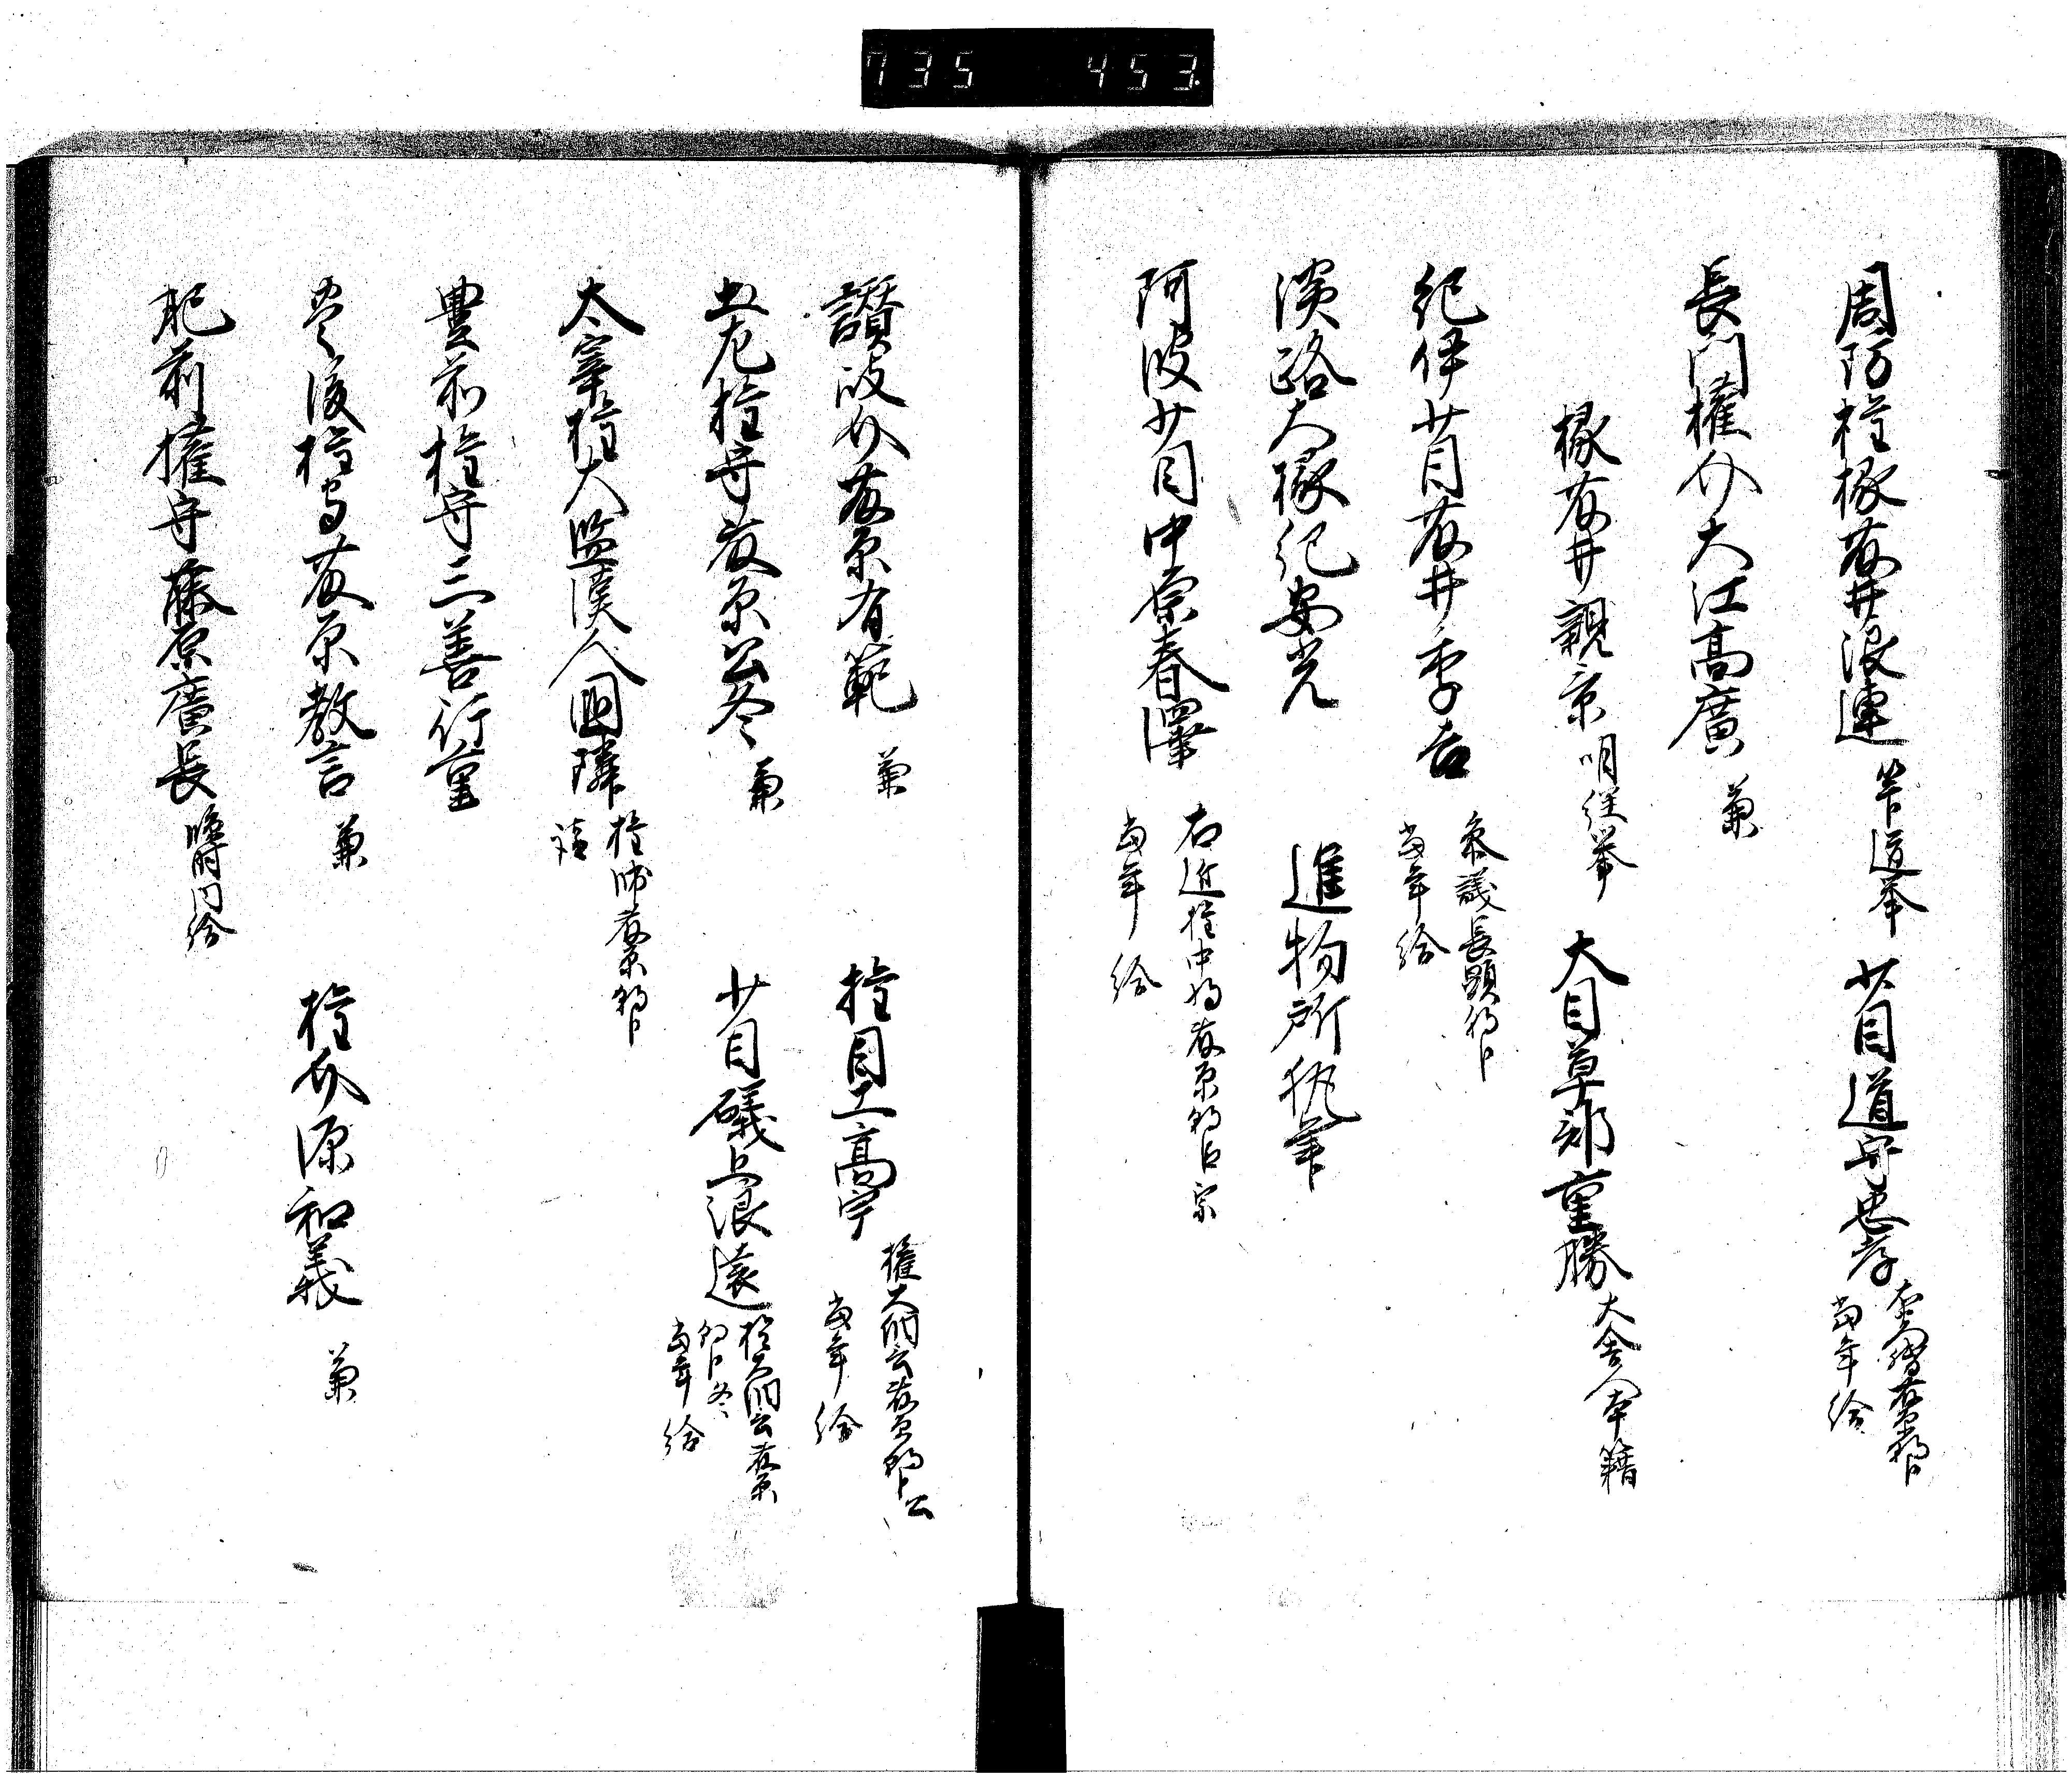 735 453
周防権掾藤井浪連 算道挙 少目道守忠孝 当年給
長門権介大江高廣 兼
掾藤井親京 明経挙 大目草部重勝 大舎人本籍
紀伊少目藤井季吉 参議長顕朝臣
当年給
淡路大掾紀安光 進物所執筆
阿波少目中原春澤 右近権中将藤原朝臣宗
当年給
讃岐介藤原有範 兼 権目工高宇 権大納言藤原朝臣公
当年給
土左権守藤原公冬 兼 少目礒上浪遠 権大納言藤原
朝臣冬
当年給
太宰権大監漢人国隣 権帥藤原朝臣
請
豊前権守三善行重
豊後権守藤原教言 兼 権介源和義 兼
肥前権守藤原廣長 臨時内給